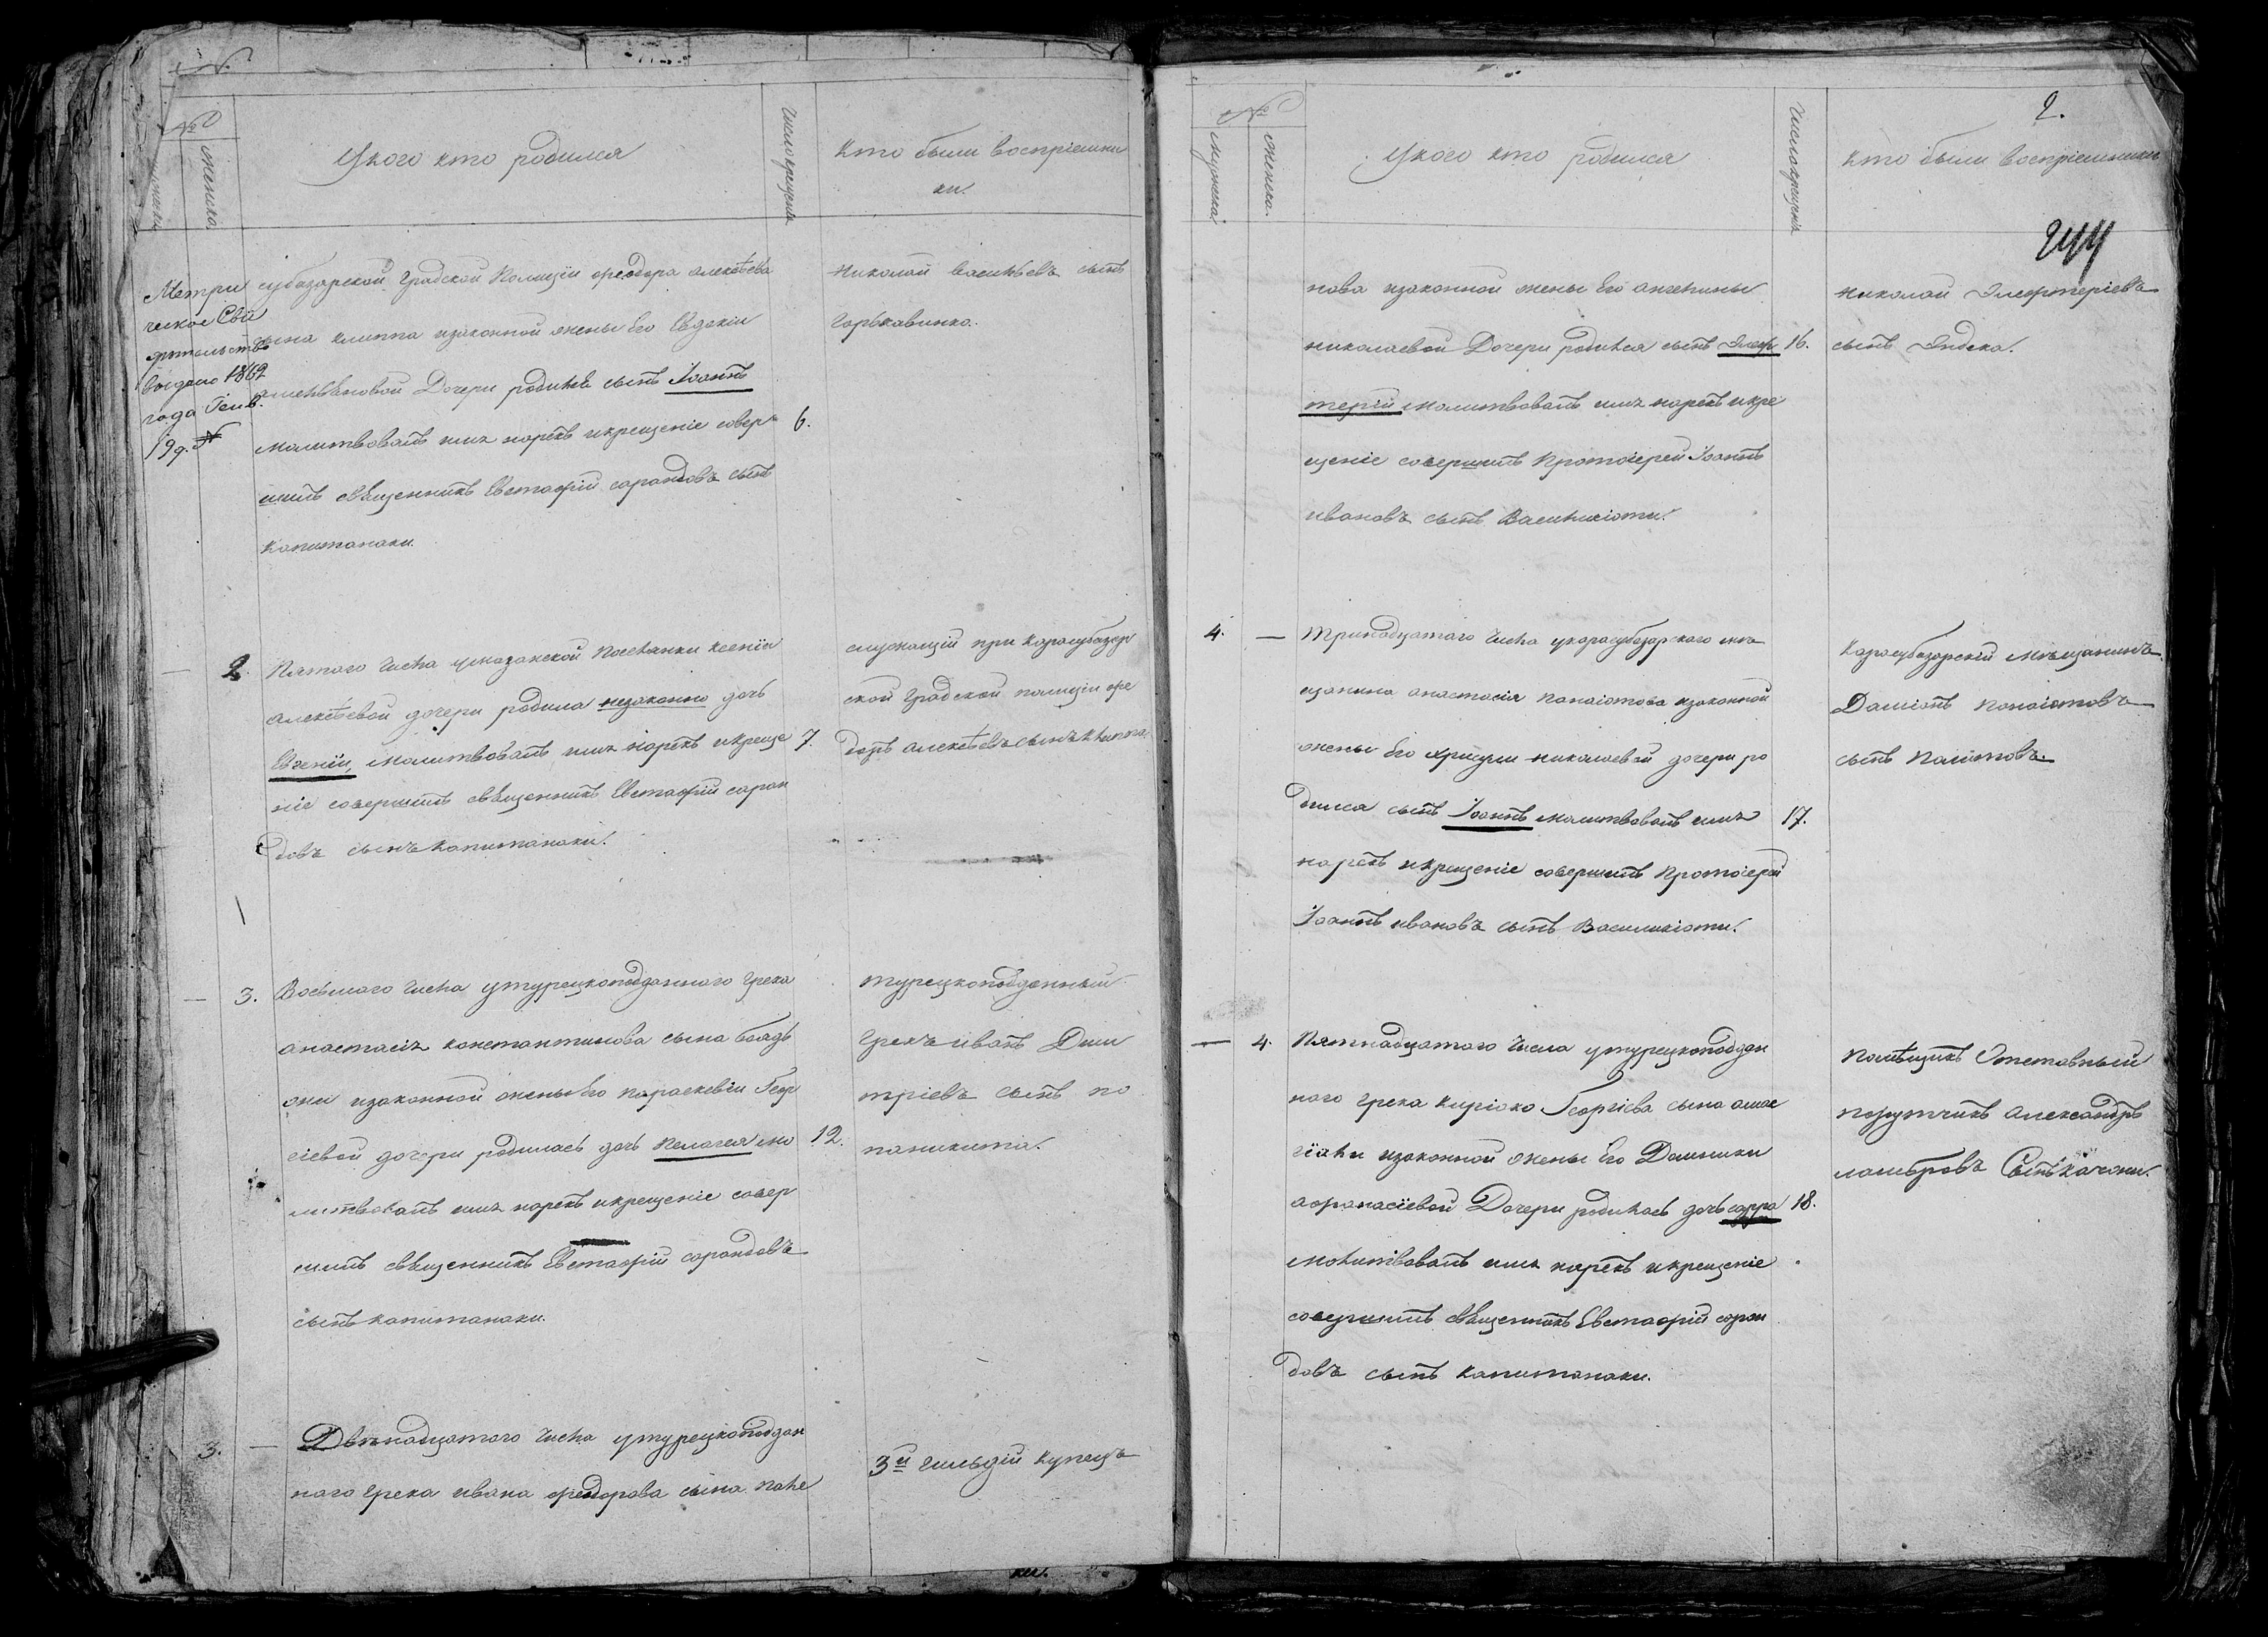 №
Мужеска
Женска
У кого кто родился
Число крещенія
Кто были воспріемни
ки.
Метри
ческое Сви
дѣтельство
выдано 1862
года Генв.
19 д. №
субазарской Градской Полиціи Феодора Алексѣева
сына Клиппа изаконной жены его Евдокіи
дочери родился сынъ Іоаннъ
молитвовалъ имя нарекъ икрещеніе совер
6.
шилъ священникъ Евстафій сарандовъ сынъ
капитанаки.
Николай васильевъ сынъ
Горькавинко.
2.
Пятаго числа указанской посѣлянки ксеніи
алексѣевой дочери родила незаконно дочь
Евгеніи, молитвовалъ имя нарекъ икреще
7.
ніе совершилъ священникъ Евстафій саран
довъ сынъ капитанаки.
служащій при Карасубазар
ской Градской полиціи фео
доръ алексѣевъ сынъ клиппа.
3.
Восьмаго числа утурецкоподданнаго грека
анастасія константинова сына
изаконной жены его параскевіи Геор
гіевой дочери родилась дочь Пелагея мо
12.
литвовалъ имя нарекъ икрещеніе совер
шилъ священникъ Евстафій сарандовъ
сынъ капитанаки.
турецкоподданный
Грекъ иванъ Дими
тріевъ сынъ по
паникита.
3.
Двѣнадцатаго числа утурецкоподдан
наго грека ивана феодорова сына пале
3й гильдіи купецъ
2.
№
Мужеска
Женска.
У кого кто родился
Число крещенія
Кто были воспріемники
244
нова изаконной жены его ангелины
николаевой Дочери родился сынъ Элеф
16.
терій молитвовалъ имя нарекъ икре
щеніе совершилъ Протоіерей Іоаннъ
ивановъ сынъ Василикіоти.
николай Элефтеріевъ
сынъ Эндека.
4.
Тринадцатаго числа укарасубазарскаго мѣ
щанина анастасія панаіотова изаконной
жены его николаевой дочери ро
дился сынъ Іоаннъ молитвовалъ имя
17.
нарекъ икрещеніе совершилъ Протоіерей
Іоаннъ ивановъ сынъ Василикіоти.
Карасубазарскій мѣщанинъ
Даміанъ панаіотовъ
сынъ
4.
Пятнадцатаго числа утурецкоподдан
наго грека киріако Георгіева сына
изаконной жены его Домники
афанасіевой Дочери родилась дочь сарра
18.
молитвовалъ имя нарекъ икрещеніе
совершилъ священникъ Евстафій саран
довъ сынъ капитанаки.
помѣщикъ Отставный
порутчикъ александръ
ламбровъ Сынъ качони.